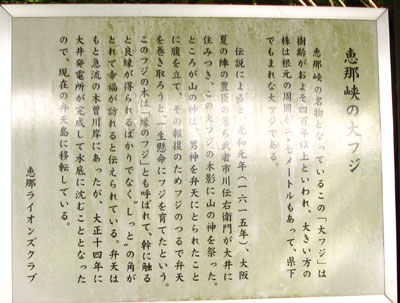 恵那峡の大フジ
恵那峡の名物となっているこの「大フジ」は
樹齢がおよそ四百年以上といわれ、大きい方の
株は根元の周囲が二・七メートルもあって、県下
でもまれな大フジである。
伝説によると、元和元年(一六一五年)、大阪
夏の陣の豊臣の落ち武者市川伝右衛門が大井に
住みつき、この大フジの木影に山の神を祭った。
ところが山の神は、男神を弁天にとられたこと
に腹を立て、その報復のためフジのつるで弁天
を巻き取ろうと一生懸命にフジを育てたという。
このフジの木は「縁のフジ」とも呼ばれて、幹に触る
と良縁が得られるばかりでなく、"しっと"の角が
とれて幸福が訪れると伝えられている。弁天は
もと急流の木曽川岸にあったが、大正十四年に
大井発電所が完成して水底に沈むこととなった
ので、現在の弁天島に移転している。
恵那ライオンズクラブ